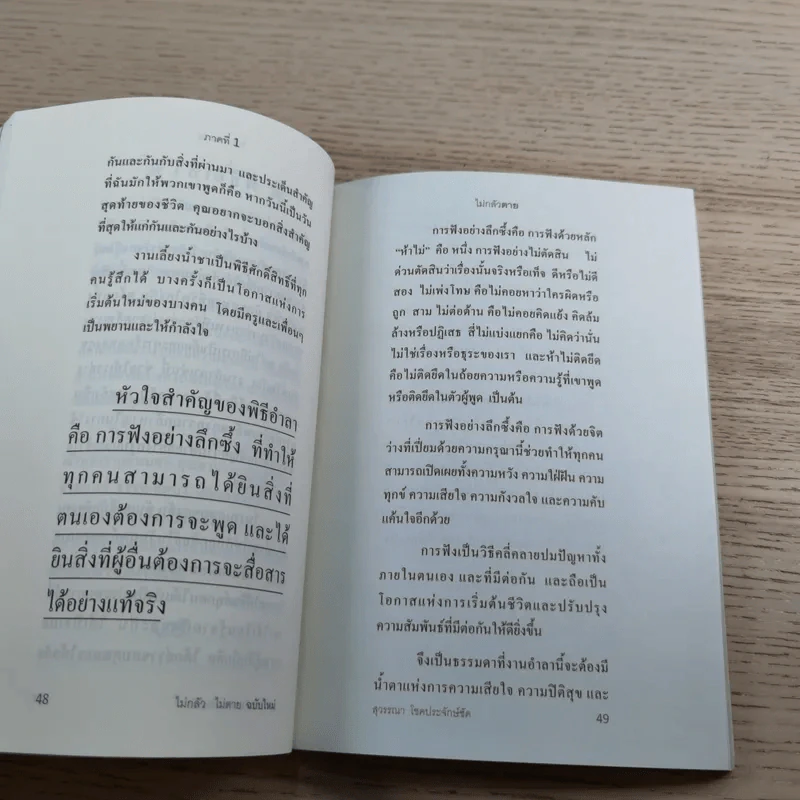 ภาคที่ 1
กันและกันกับสิ่งที่ผ่านมา และประเด็นสำคัญ
ที่ฉันมักให้พวกเขาพูดก็คือ หากวันนี้เป็นวัน
สุดท้ายของชีวิต คุณอยากจะบอกสิ่งสำคัญ
ที่สุดให้แก่กันและกันอย่างไรบ้าง
งานเลี้ยงน้ำชาเป็นพิธีศักดิ์สิทธิ์ที่ทุก
คนรู้สึกได้ บางครั้งก็เป็นโอกาสแห่งการ
เริ่มต้นใหม่ของบางคน โดยมีครูและเพื่อนๆ
เป็นพยานและให้กำลังใจ
หัวใจสำคัญของพิธีอำลา
คือ การฟังอย่างลึกซึ้ง ที่ทำให้
ทุกคนสามารถได้ยินสิ่งที่
ตนเองต้องการจะพูด และได้
ยินสิ่งที่ผู้อื่นต้องการจะสื่อสาร
ได้อย่างแท้จริง
48
ไม่กลัว ไม่ตาย ฉบับใหม่
ไม่กลัวตาย
การฟังอย่างลึกซึ้งคือ การฟังด้วยหลัก
“ห้าไม่” คือ หนึ่ง การฟังอย่างไม่ตัดสิน ไม่
ด่วนตัดสินว่าเรื่องนั้นจริงหรือเท็จ ดีหรือไม่ดี
สอง ไม่เพ่งโทษ คือไม่คอยหาว่าใครผิดหรือ
ถูก สาม ไม่ต่อต้าน คือไม่คอยคิดแย้ง คิดล้ม
ล้างหรือปฏิเสธ สี่ไม่แบ่งแยกคือ ไม่คิดว่านั่น
ไม่ใช่เรื่องหรือธุระของเรา และห้าไม่ติดยึด
คือไม่ติดยึดในถ้อยความหรือความรู้ที่เขาพูด
หรือติดยึดในตัวผู้พูด เป็นต้น
การฟังอย่างลึกซึ้งคือ การฟังด้วยจิต
ว่างที่เปี่ยมด้วยความกรุณานี้ช่วยทำให้ทุกคน
สามารถเปิดเผยทั้งความหวัง ความใฝ่ฝัน ความ
ทุกข์ ความเสียใจ ความกังวลใจ และความคับ
แค้นใจอีกด้วย
การฟังเป็นวิธีคลี่คลายปมปัญหาทั้ง
ภายในตนเอง และที่มีต่อกัน และถือเป็น
โอกาสแห่งการเริ่มต้นชีวิตและปรับปรุง
ความสัมพันธ์ที่มีต่อกันให้ดียิ่งขึ้น
จึงเป็นธรรมดาที่งานอำลานี้จะต้องมี
น้ำตาแห่งการความเสียใจ ความปิติสุข และ
สุวรรณา โชคประจักษ์ชัด
49